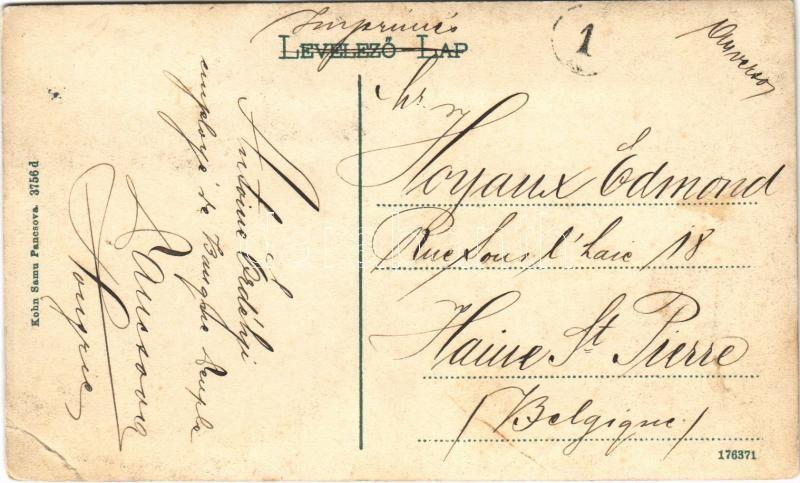 Imprimés
LEVELEZŐ LAP
1
Hoyaux Edmond
Rue Sous l'haie 18
Haine St Pierre
(Belgique)
176371
Antoine Erdélyi
employé de Banque
Pancsova
Hongrie
Kohn Samu Pancsova. 3756 d